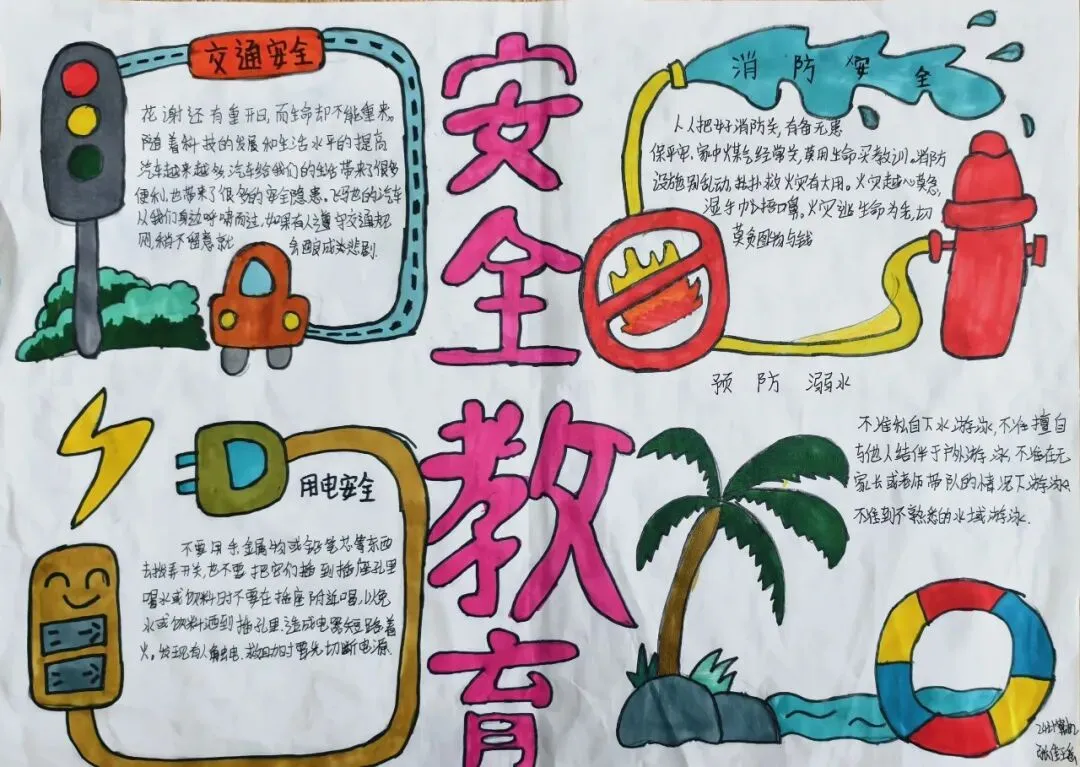 安全教育
交通安全
花谢还有重开日,而生命却不能重来。
随着科技的发展和生活水平的提高
汽车越来越多,汽车给我们的生活带来了很多
便利,也带来了很多的安全隐患。飞驰的汽车
从我们身边呼啸而过,如果有人遵守交通规
则,稍不留意就 会酿成为悲剧.
消防安全
人人把好消防关,有备无患
保平安,家中煤气经常关,莫用生命买教训。消防
设施别乱动,扑救火灾有大用。火灾起,心莫急,
湿毛巾捂口鼻。火灾逃生命为先,切
莫贪图物与钱
用电安全
不要用手金属物或铅笔芯等东西
去拨弄开关,也不要把它们插到插座孔里
喝水或饮料时不要在插座附近喝,以免
水或饮料洒到插孔里,造成电器短路着
火。发现有人触电,救助时要先切断电源
预防溺水
不准私自下水游泳,不准擅自
与他人结伴于户外游泳 不准在无
家长或老师带队的情况下游泳
不准到不熟悉的水域游泳.